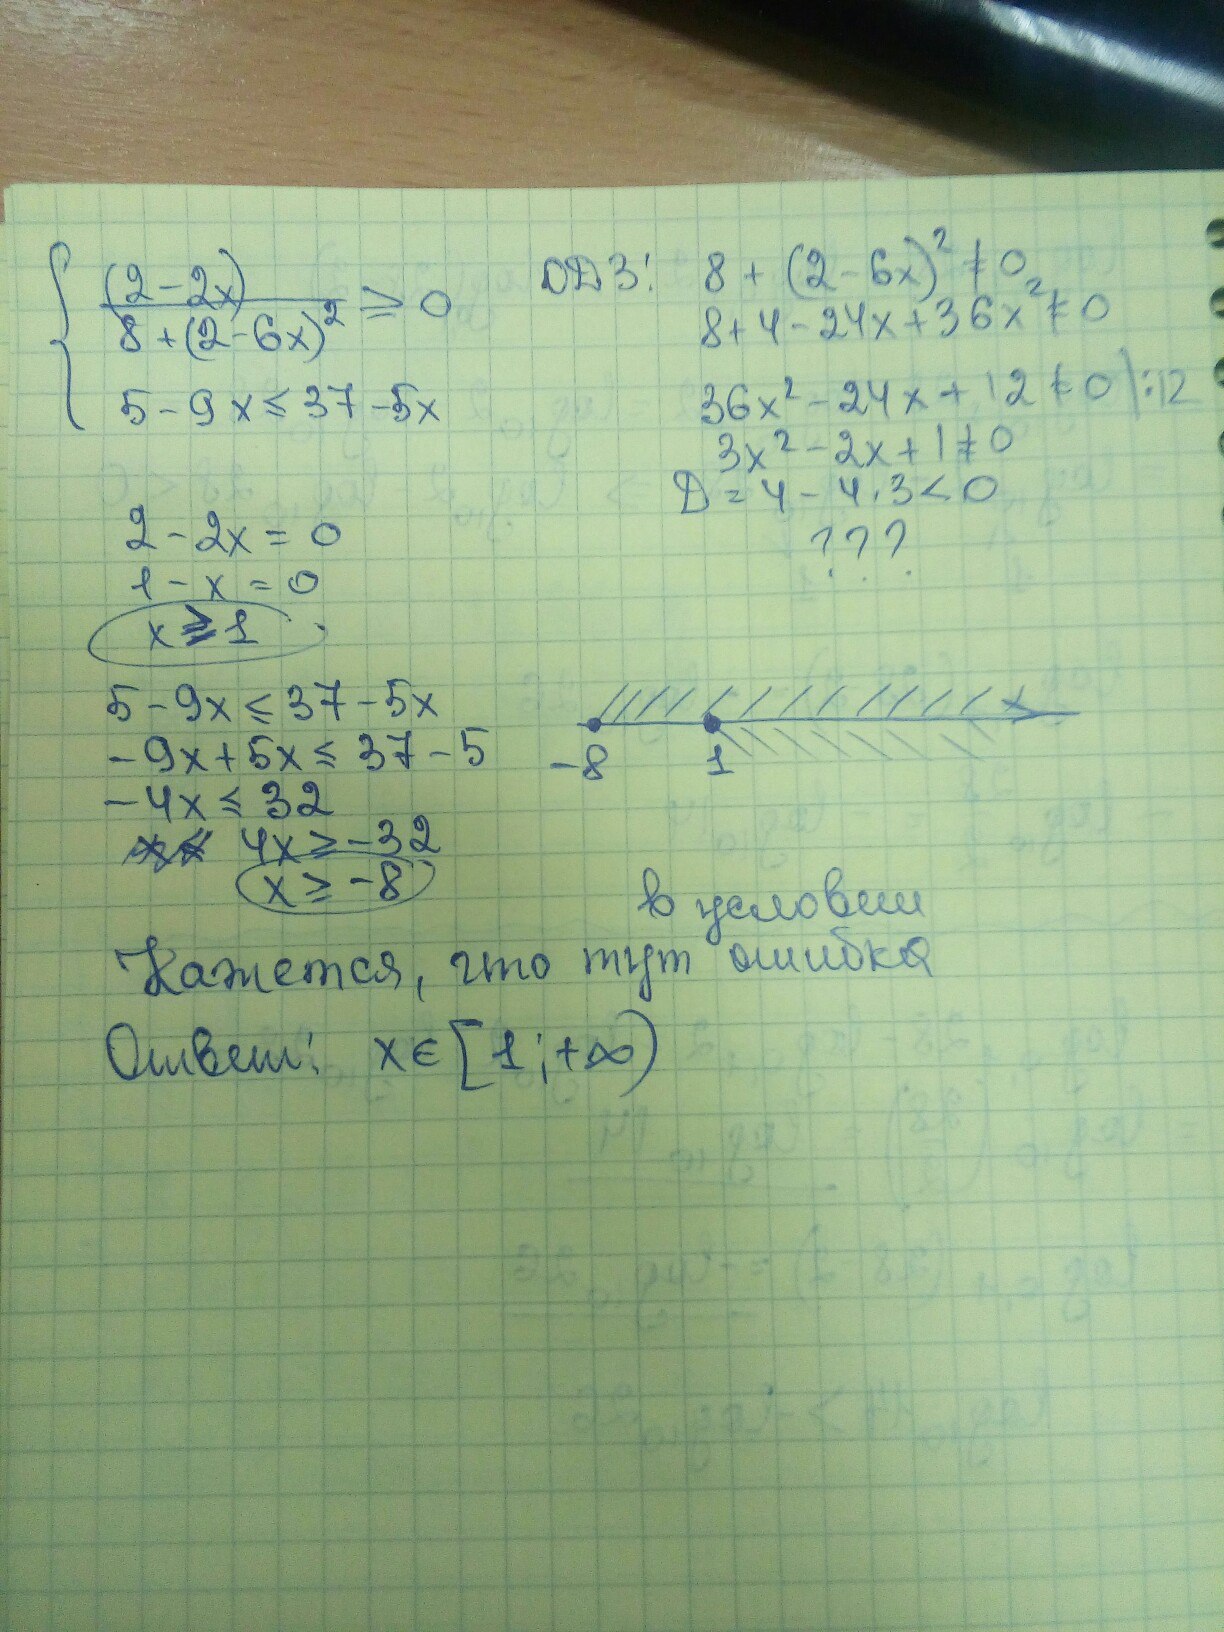 (2-2x)
8+(2-6x)² ≥ 0
5-9x≤37-5x
ОДЗ: 8+(2-6x)²≠0
8+4-24x+36x²≠0
36x²-24x+12≠0|:12
3x²-2x+1≠0
D=4-4·3<0
???
2-2x=0
1-x=0
x≥1
5-9x≤37-5x
-9x+5x≤37-5
-4x≤32
4x≥-32
x≥-8
x
-8 1
в условии
Кажется, что тут ошибка
Ответ: x∈[1;+∞)